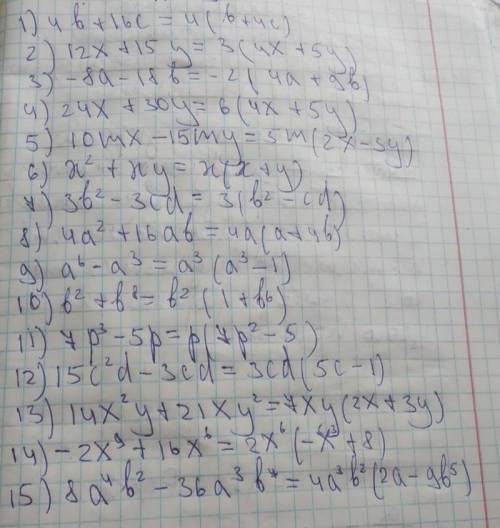 1) 4b + 16c = 4(b+4c)
2) 12x + 15y = 3(4x + 5y)
3) -8a - 18b = -2(4a + 9b)
4) 24x + 30y = 6(4x + 5y)
5) 10mx - 15my = 5m(2x - 3y)
6) x² + xy = x(x + y)
7) 3b² - 3cd = 3(b² - cd)
8) 4a² + 16ab = 4a(a + 4b)
9) a⁶ - a³ = a³(a³ - 1)
10) b² + b⁸ = b²(1 + b⁶)
11) 7p³ - 5p = p(7p² - 5)
12) 15c²d - 3cd = 3cd(5c - 1)
13) 14x²y + 21xy² = 7xy(2x + 3y)
14) -2x⁹ + 16x⁶ = 2x⁶(-x³ + 8)
15) 8a⁴b² - 36a³b⁷ = 4a³b²(2a - 9b⁵)